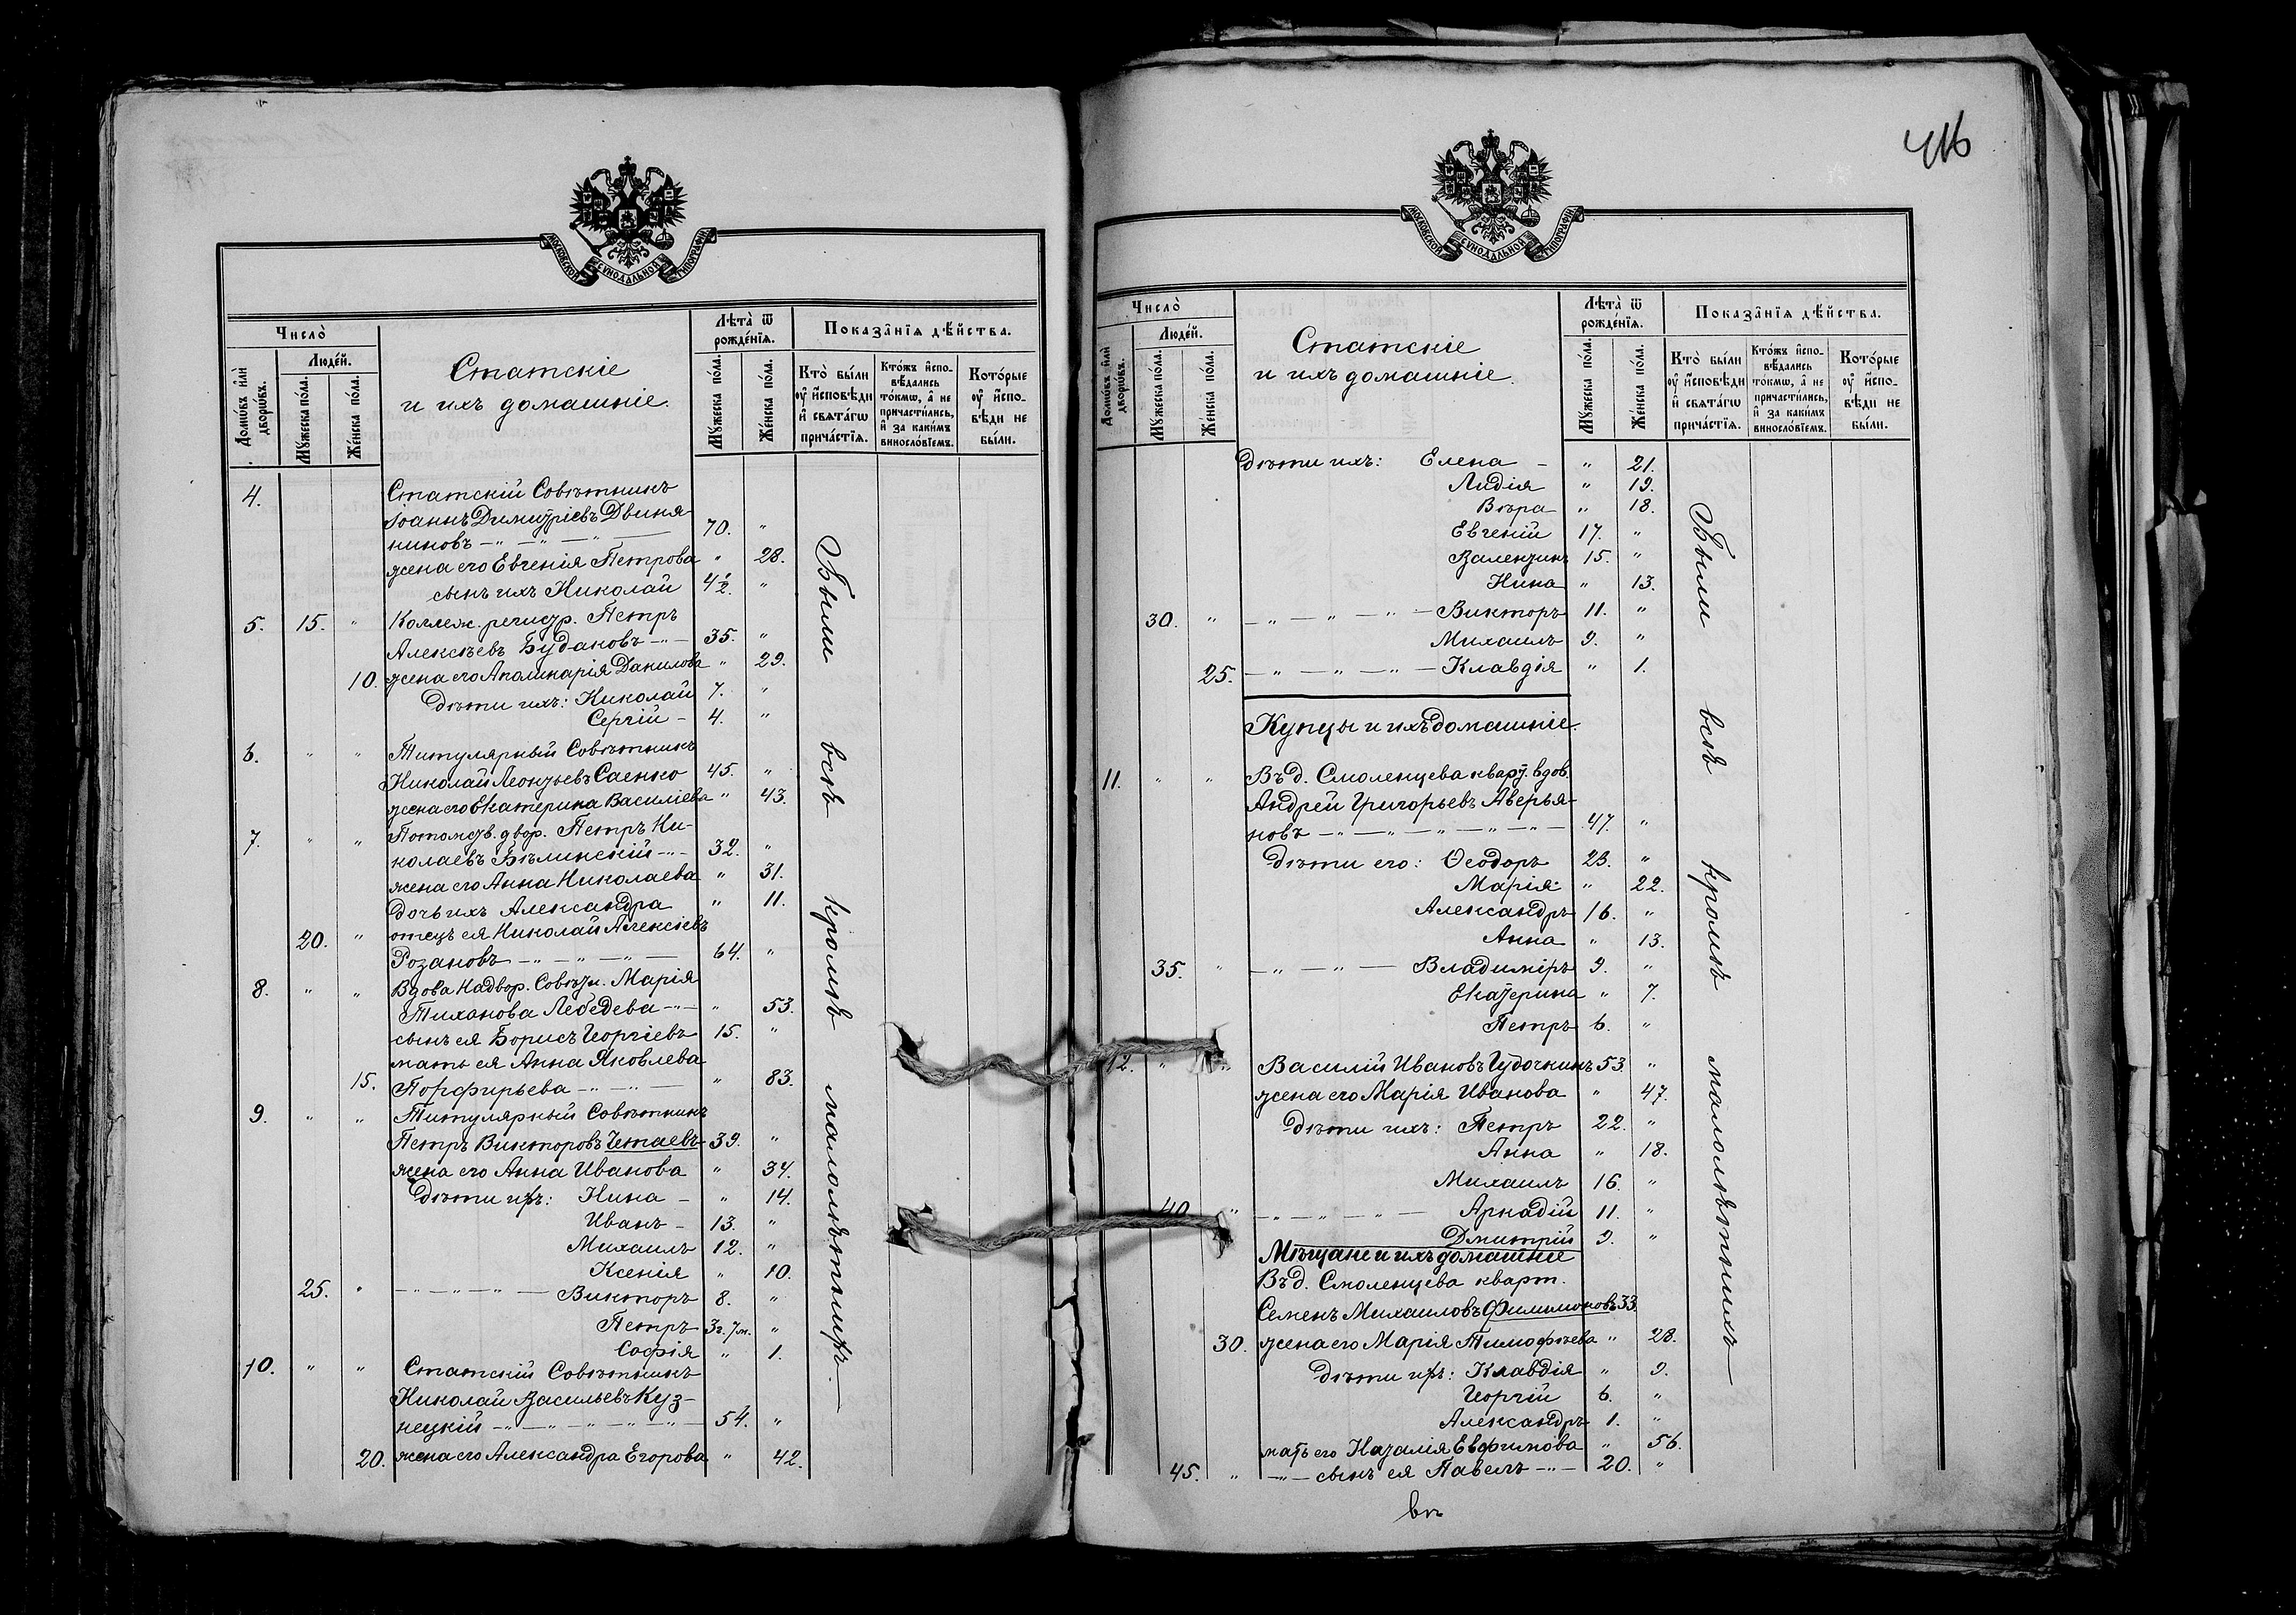 МОСКОВСКОЙ СѴНОДАЛЬНОЙ ТИПОГРАФІИ.
Число̀
Домѡ́въ и҆лѝ дворѡ́въ.
Люде́й.
Мꙋ́жеска по́ла.
Же́нска по́ла.
Статскіе
и ихъ домашніе.
Лѣта̀ ѿ рожде́нїѧ.
Мꙋ́жеска по́ла.
Же́нска по́ла.
Показа̑нїѧ дѣ́йства.
Кто̀ бы́ли ᲂу҆ и҆сповѣ́ди и҆ свѧта́гѡ прича́стїѧ.
Кто́жъ и҆спо-
вѣ́дались то́кмѡ, а҆ не причасти́лись, и҆ за каки́мъ винослові́емъ.
Кото́рые ᲂу҆ и҆спо-
вѣ́ди не бы́ли.
4. Статскій Совѣтникъ
Іоаннъ Димитріевъ Двиня-
ниновъ 70. "
жена его Евгенія Петрова " 28.
сынъ ихъ Николай 4½. "
5. 15. " Коллеж. регистр. Петръ
Алексѣевъ Будановъ 35. "
10. жена его Аполинарія Данилова " 29.
Дѣти ихъ: Николай 7. "
Сергій 4. "
6. " " Титулярный Совѣтникъ
Николай Леонтьевъ Саенко 45. "
жена его Екатерина Василіева " 43.
7. " " Потомств. двор. Петръ Ни-
колаевъ Бѣлинскій 32. "
жена его Анна Николаева " 31.
Дочь ихъ Александра " 11.
20. " отецъ ея Николай Алексіевъ
Розановъ 64. "
8. " " Вдова Надвор. Совѣтн. Марія
Тиханова Лебедева " 53.
сынъ ея Борисъ Георгіевъ 15. "
мать ея Анна Яковлева
15. Порфирьева " 83.
9. " " Титулярный Совѣтникъ
Петръ Викторовъ Четаевъ 39. "
жена его Анна Иванова " 34.
Дѣти ихъ: Нина " 14.
Иванъ 13. "
Михаилъ 12. "
Ксенія " 10.
25. " Викторъ 8. "
Петръ 3г. 7м. "
Софія " 1.
10. " " Статскій Совѣтникъ
Николай Васильевъ Куз-
нецкій 54. "
20. жена его Александра Егорова " 42.
Были всѣ кромѣ малолѣтнихъ.
416
МОСКОВСКОЙ СѴНОДАЛЬНОЙ ТИПОГРАФІИ.
Число̀
Домѡ́въ и҆лѝ дворѡ́въ.
Люде́й.
Мꙋ́жеска по́ла.
Же́нска по́ла.
Статскіе
и ихъ домашніе.
Лѣта̀ ѿ рожде́нїѧ.
Мꙋ́жеска по́ла.
Же́нска по́ла.
Показа̑нїѧ дѣ́йства.
Кто̀ бы́ли ᲂу҆ и҆сповѣ́ди и҆ свѧта́гѡ прича́стїѧ.
Кто́жъ и҆спо-
вѣ́дались то́кмѡ, а҆ не причасти́лись, и҆ за каки́мъ винослові́емъ.
Кото́рые ᲂу҆ и҆спо-
вѣ́ди не бы́ли.
Дѣти ихъ: Елена " 21.
Лидія " 19.
Вѣра " 18.
Евгеній 17. "
Валентинъ 15. "
Нина " 13.
30. " Викторъ 11. "
Михаилъ 9. "
25. Клавдія " 1.
Купцы и ихъ домашніе.
11. " " Въ д. Смоленцева кварт. вдов.
Андрей Григорьевъ Аверья-
новъ 47. "
Дѣти его: Ѳеодоръ 23. "
Марія " 22.
Александръ 16. "
Анна " 13.
35. " Владиміръ 9. "
Екатерина " 7.
Петръ 6. "
12. " " Василій Ивановъ Чудочкинъ 53. "
жена его Марія Иванова " 47.
Дѣти ихъ: Петръ 22. "
Анна " 18.
Михаилъ 16. "
40. " Аркадій 11. "
Дмитрій 9. "
Мѣщане и ихъ домашніе
Въ д. Смоленцева кварт.
Семенъ Михаиловъ Филимоновъ 33.
30. жена его Марія Тимофѣева " 28.
Дѣти ихъ: Клавдія " 9.
Георгій 6. "
Александръ 1. "
мать его Наталія Евфимова " 56.
45. " сынъ ея Павелъ 20. "
Были всѣ кромѣ малолѣтнихъ